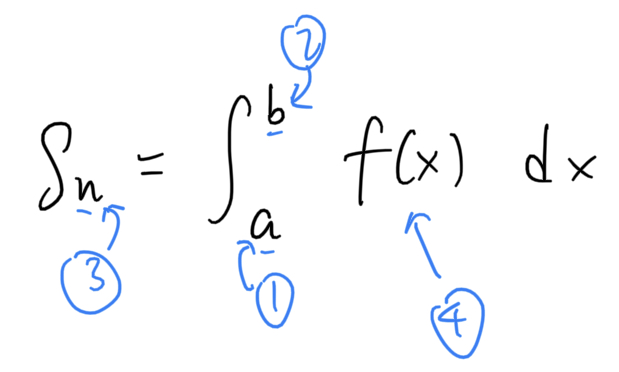 ②
∫ₙ = ∫ₐᵇ f(x) dx
③ ① ④